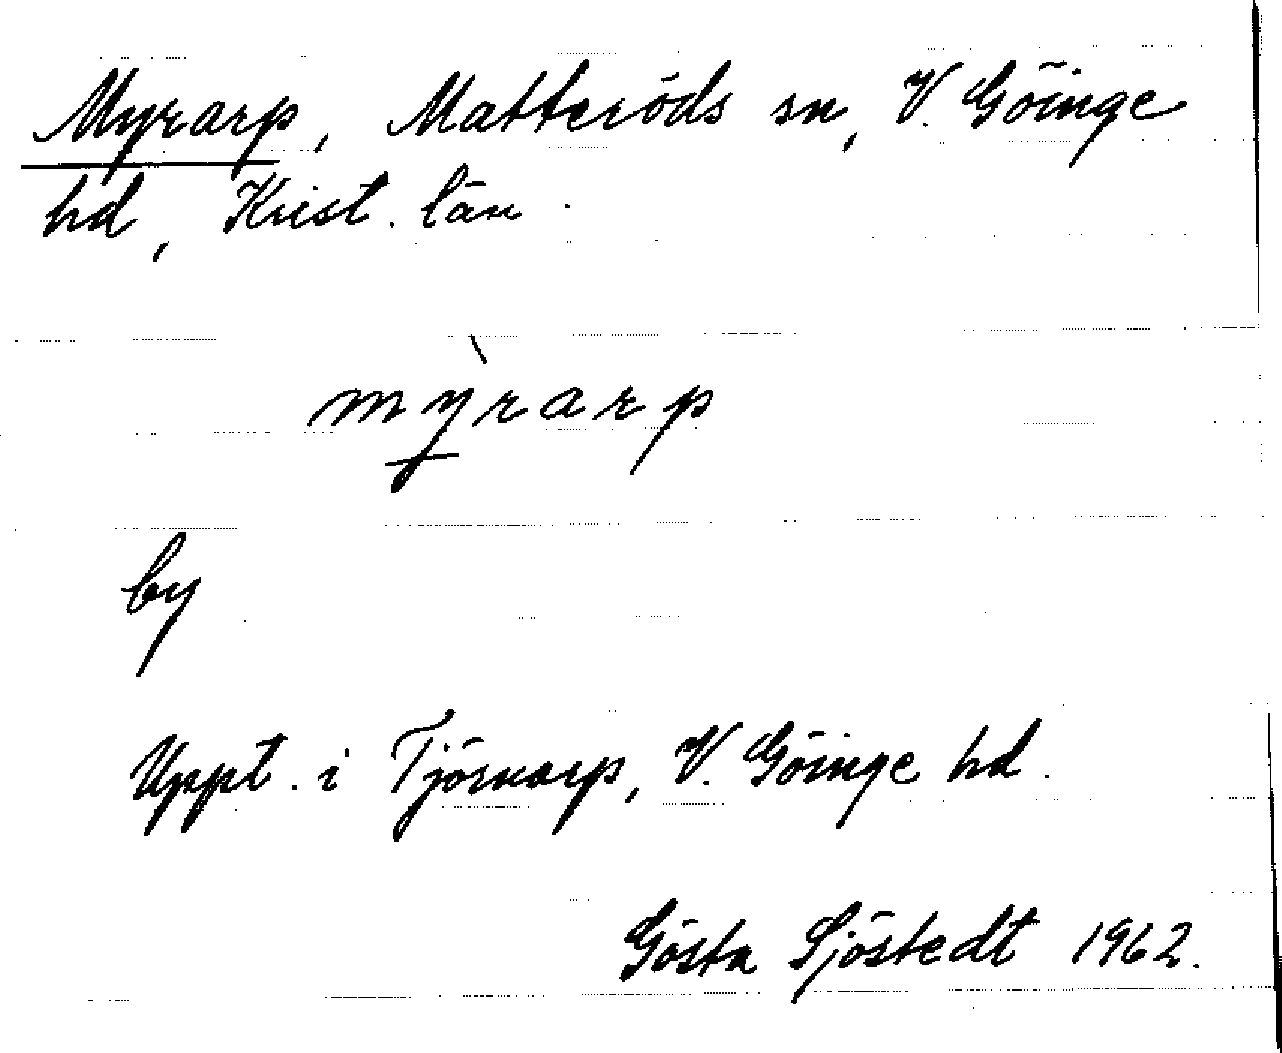 Myrarp, Matteröds sn, V. Göinge
hd, Krist. län.
mỳrarp
by
Uppt. i Tjörnarp, V. Göinge hd.
Gösta Sjöstedt 1962.